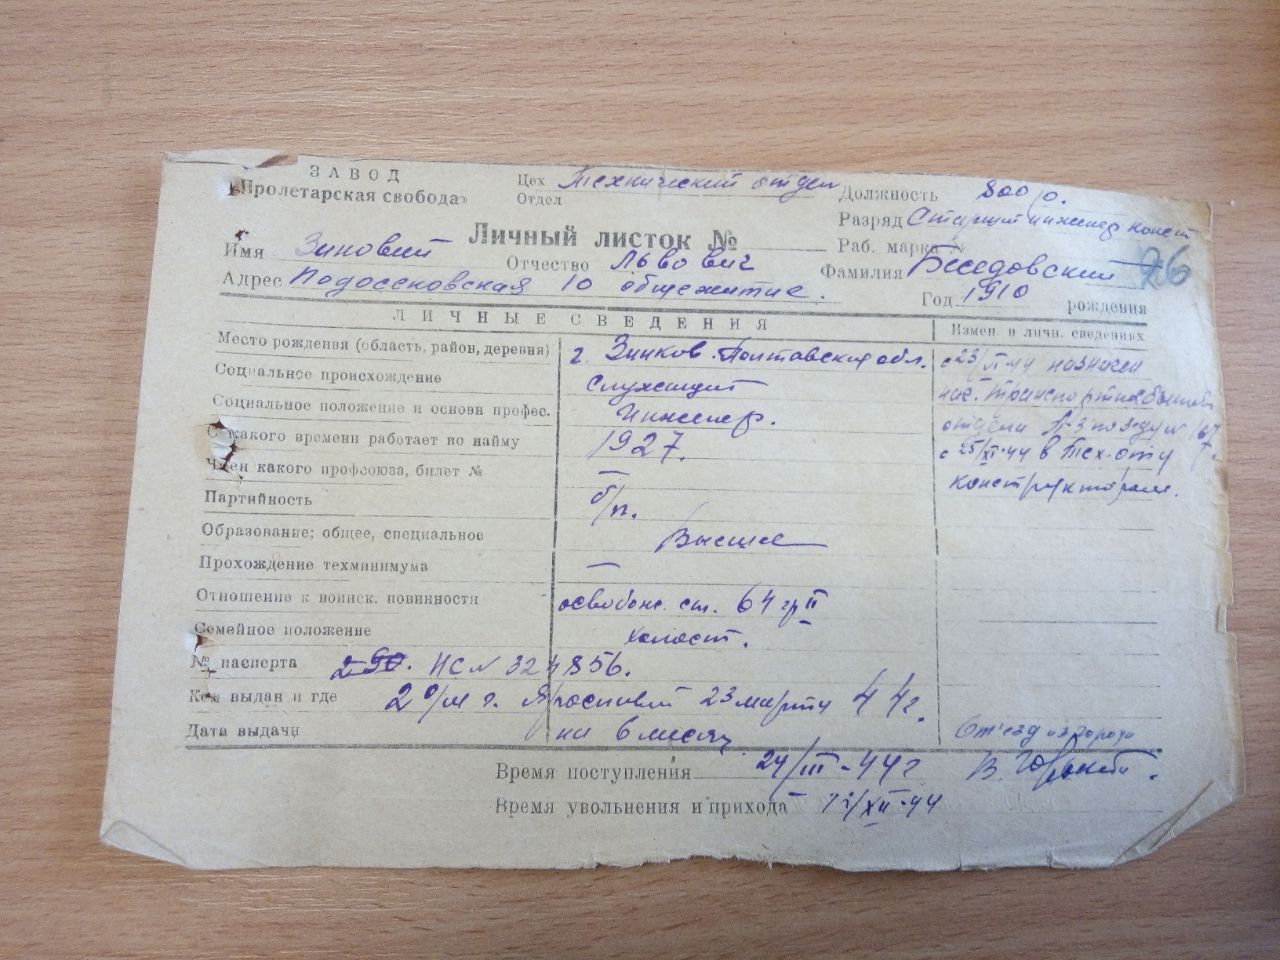 ЗАВОД
«Пролетарская свобода»
Цех Технический отдел
Отдел
Должность 800 р.
Разряд Старший инженер конст
Личный листок №
Раб. марка № 26
Имя Зиновий Отчество Львович Фамилия Беседовский
Адрес Подосеновская 10 общежитие. Год 1910 рождения
ЛИЧНЫЕ СВЕДЕНИЯ
Измен. в личн. сведениях
Место рождения (область, район, деревня) г. Зиньков Полтавская обл.
Социальное происхождение Служащий
Социальное положение и основн профес. Инженер.
С какого времени работает по найму 1927.
Член какого профсоюза, билет № —
Партийность б/п.
Образование; общее, специальное Высшее
Прохождение техминимума —
Отношение к воинск. повинности освобожд. ст. 64 гр II
Семейное положение холост.
№ паспорта 290. НС № 324856.
Кем выдан и где 2 о/м г. Ярославль 23 марта 44г.
Дата выдачи на 6 месяц
с 23/ 44 назначен
нач.
отдела
с 25/XI-44 в Тех. отд
конструктором.
Время поступления 24/III-44г
Время увольнения и прихода 12/XII-44
От'езд из города